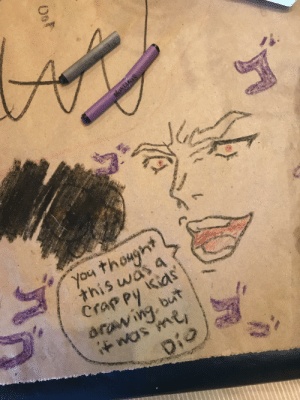 you thought
this was a
crappy kids'
drawing, but
it was me,
Dio
ゴ
ゴ
ゴ
ゴ
ゴ